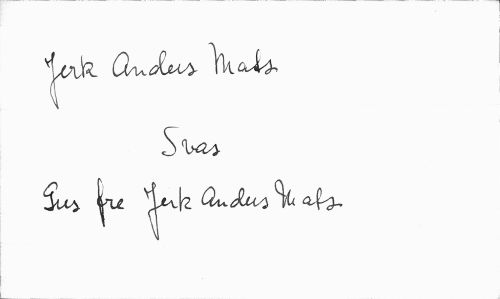 Jerk Anders Mats
Svas
Gus fre Jerk Anders Mats